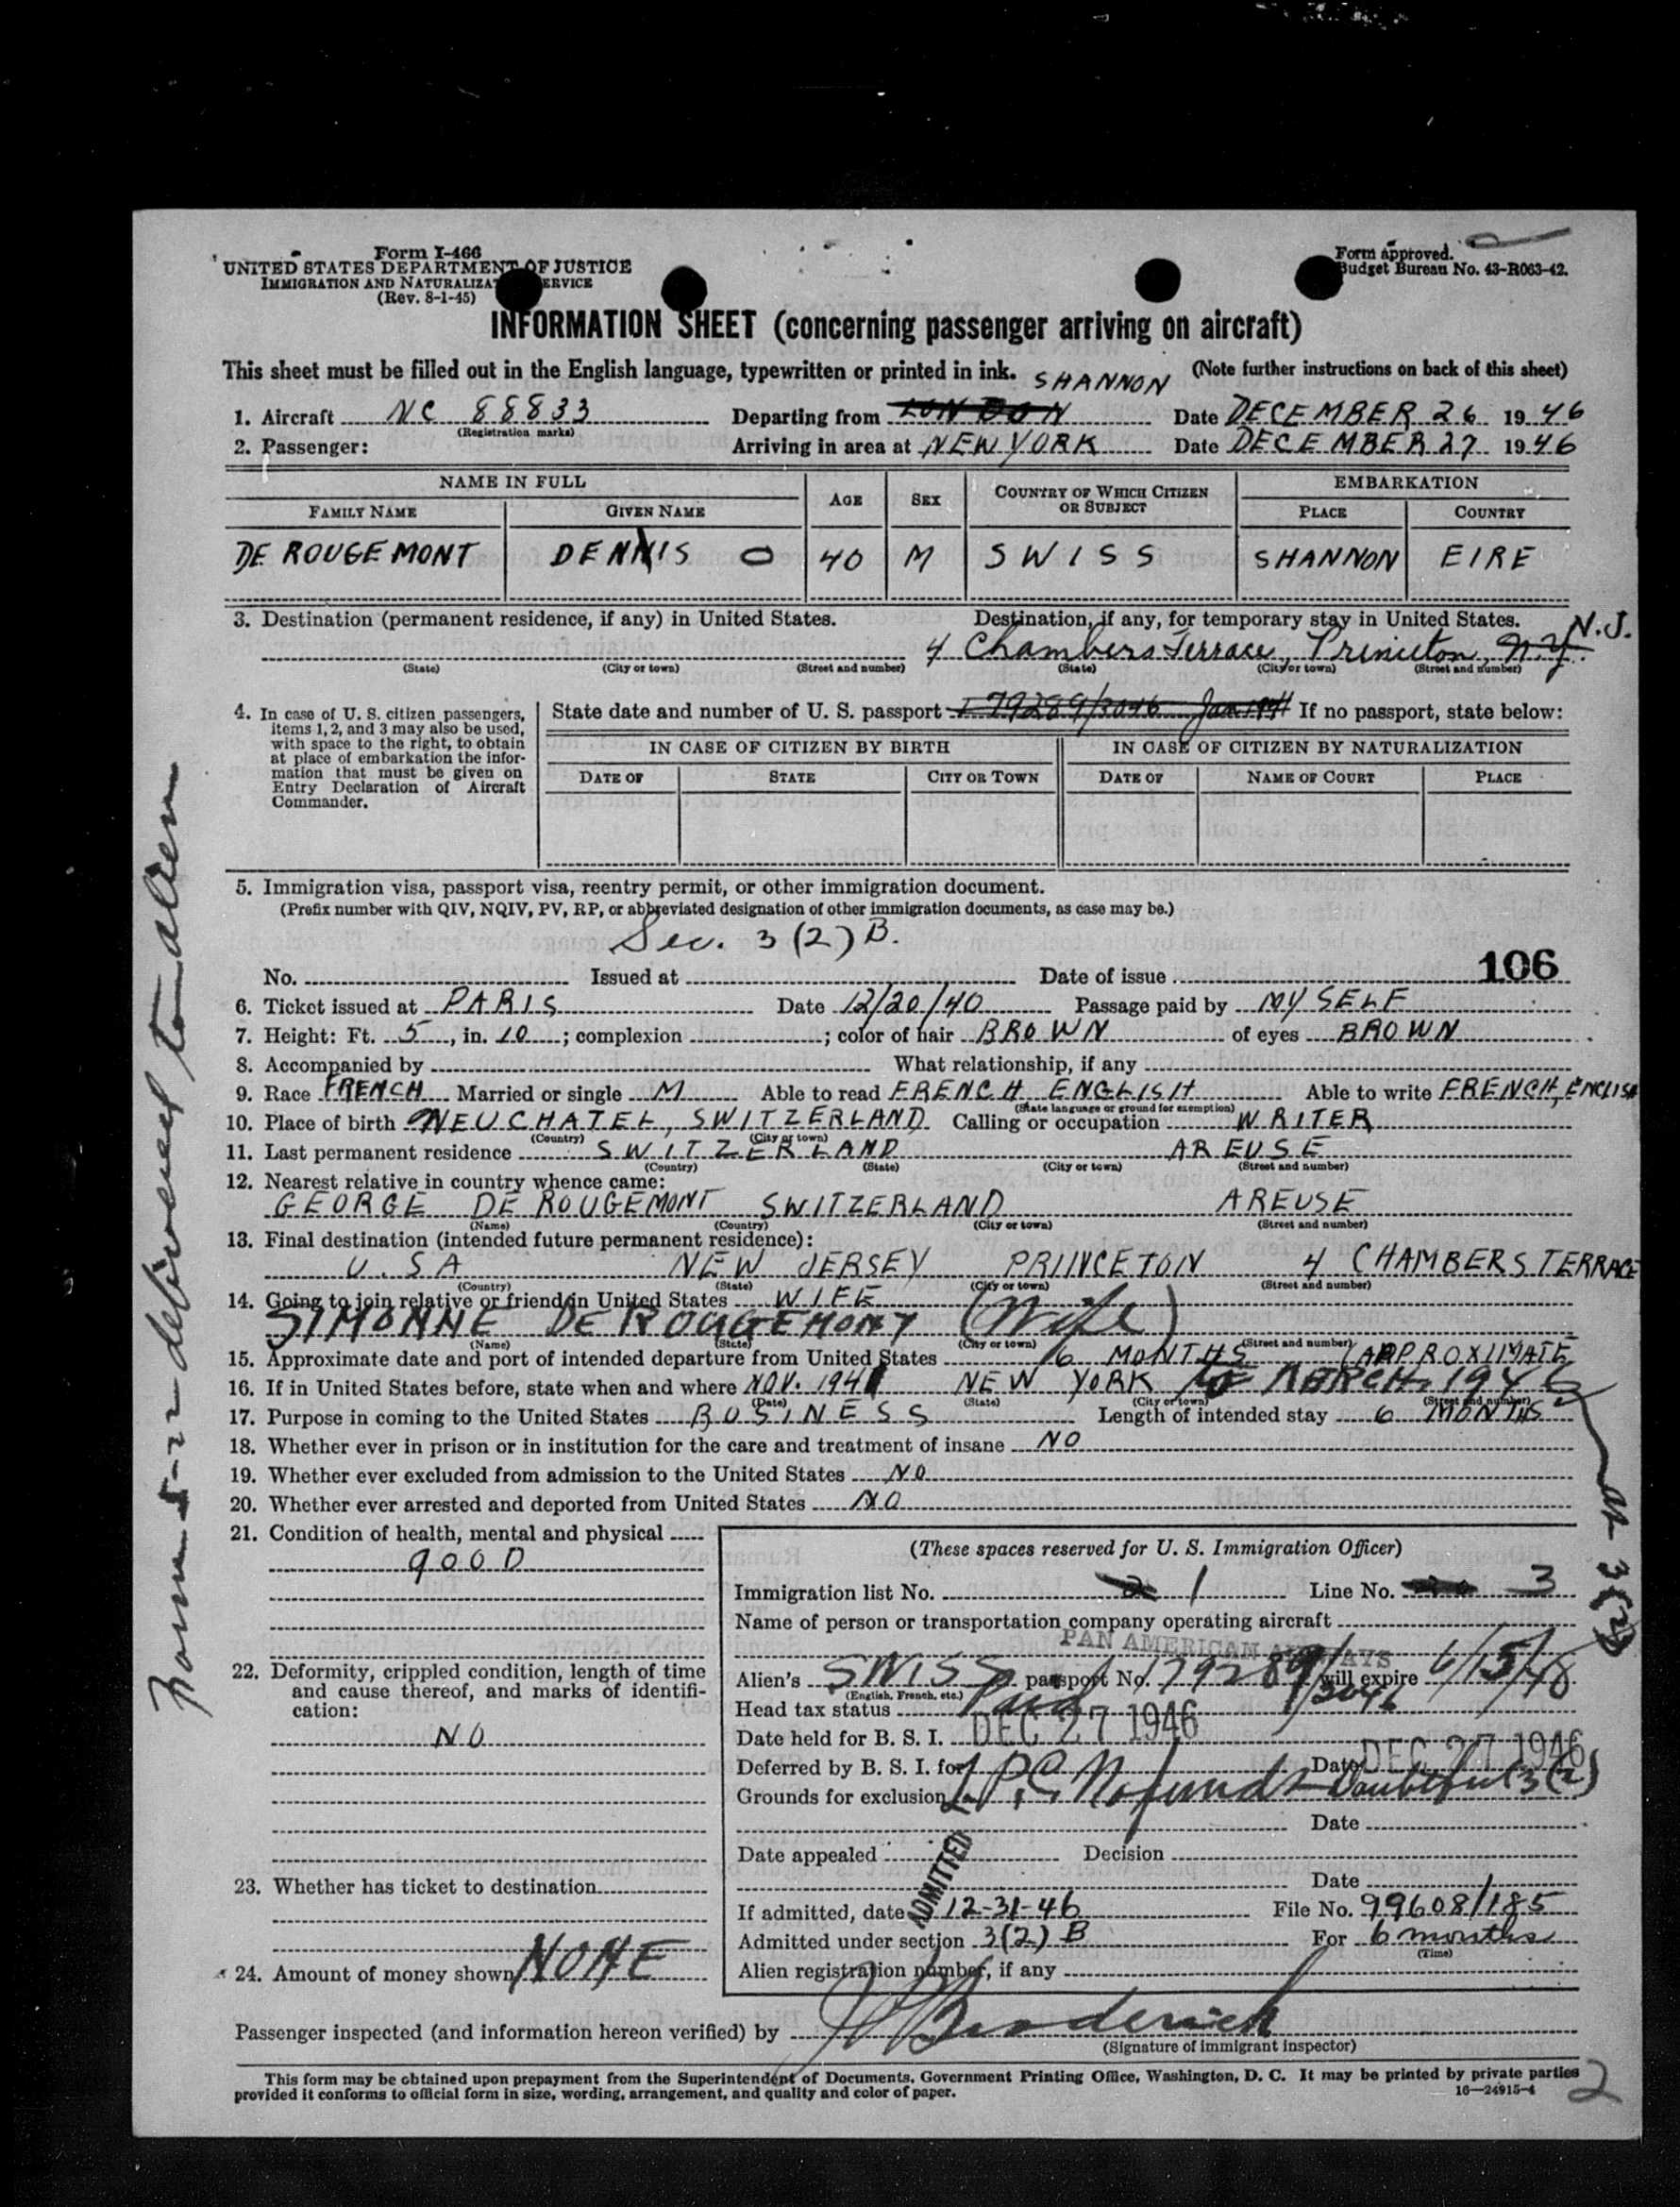 Form I-466
UNITED STATES DEPARTMENT OF JUSTICE
IMMIGRATION AND NATURALIZAT ERVICE
(Rev. 8-1-45)
Form approved.
Budget Bureau No. 43-R063-42.
INFORMATION SHEET (concerning passenger arriving on aircraft)
This sheet must be filled out in the English language, typewritten or printed in ink. (Note further instructions on back of this sheet)
SHANNON
1. Aircraft NC 88833 Departing from LONDON Date DECEMBER 26 1946
(Registration marks)
2. Passenger: Arriving in area at NEW YORK Date DECEMBER 27 1946
NAME IN FULL AGE SEX COUNTRY OF WHICH CITIZEN OR SUBJECT EMBARKATION
FAMILY NAME GIVEN NAME PLACE COUNTRY
DE ROUGEMONT DENNIS O 40 M SWISS SHANNON EIRE
3. Destination (permanent residence, if any) in United States. Destination, if any, for temporary stay in United States.
4 Chambers Terrace, Princeton, N.Y. N.J.
(State) (City or town) (Street and number) (State) (City or town) (Street and number)
4. In case of U. S. citizen passengers,
items 1, 2, and 3 may also be used,
with space to the right, to obtain
at place of embarkation the infor-
mation that must be given on
Entry Declaration of Aircraft
Commander.
State date and number of U. S. passport 79289/3046 If no passport, state below:
IN CASE OF CITIZEN BY BIRTH IN CASE OF CITIZEN BY NATURALIZATION
DATE OF STATE CITY OR TOWN DATE OF NAME OF COURT PLACE
5. Immigration visa, passport visa, reentry permit, or other immigration document.
(Prefix number with QIV, NQIV, PV, RP, or abbreviated designation of other immigration documents, as case may be.)
Sec. 3 (2) B.
No. Issued at Date of issue 106
6. Ticket issued at PARIS Date 12/20/40 Passage paid by MYSELF
7. Height: Ft. 5, in. 10; complexion ; color of hair BROWN of eyes BROWN
8. Accompanied by What relationship, if any
9. Race FRENCH Married or single M Able to read FRENCH ENGLISH Able to write FRENCH, ENGLISH
(State language or ground for exemption)
10. Place of birth NEUCHATEL, SWITZERLAND Calling or occupation WRITER
(Country) (City or town)
11. Last permanent residence SWITZERLAND AREUSE
(Country) (State) (City or town) (Street and number)
12. Nearest relative in country whence came:
GEORGE DE ROUGEMONT SWITZERLAND AREUSE
(Name) (Country) (City or town) (Street and number)
13. Final destination (intended future permanent residence):
U.S A NEW JERSEY PRINCETON 4 CHAMBERS TERRACE
(Country) (State) (City or town) (Street and number)
14. Going to join relative or friend in United States WIFE
SIMONNE DE ROUGEMONT (Wife)
(Name) (State) (City or town) (Street and number)
15. Approximate date and port of intended departure from United States 6 MONTHS (APPROXIMATE
16. If in United States before, state when and where NOV. 1941 NEW YORK TO MARCH, 1946
(Date) (State) (City or town) (Street and number)
17. Purpose in coming to the United States BUSINESS Length of intended stay 6 MONTHS
18. Whether ever in prison or in institution for the care and treatment of insane NO
19. Whether ever excluded from admission to the United States NO
20. Whether ever arrested and deported from United States NO
21. Condition of health, mental and physical
good
22. Deformity, crippled condition, length of time
and cause thereof, and marks of identifi-
cation:
NO
23. Whether has ticket to destination
24. Amount of money shown NONE
(These spaces reserved for U. S. Immigration Officer)
Immigration list No. 2 1 Line No. 3
Name of person or transportation company operating aircraft
PAN AMERICAN AIRWAYS
Alien's SWISS passport No. 179289/3046 will expire 6/15/48
(English, French, etc.)
Head tax status Paid
Date held for B. S. I. DEC 27 1946
Deferred by B. S. I. for Date DEC 27 1946
Grounds for exclusion L.P.C. No funds & Doubtful 3(2)
Date
Date appealed Decision
Date
ADMITTED
If admitted, date 12-31-46 File No. 99608/185
Admitted under section 3(2) B For 6 months
(Time)
Alien registration number, if any
Passenger inspected (and information hereon verified) by Broderick
(Signature of immigrant inspector)
This form may be obtained upon prepayment from the Superintendent of Documents, Government Printing Office, Washington, D. C. It may be printed by private parties
provided it conforms to official form in size, wording, arrangement, and quality and color of paper. 16—24915-4
2
delivered to alien
3(2)